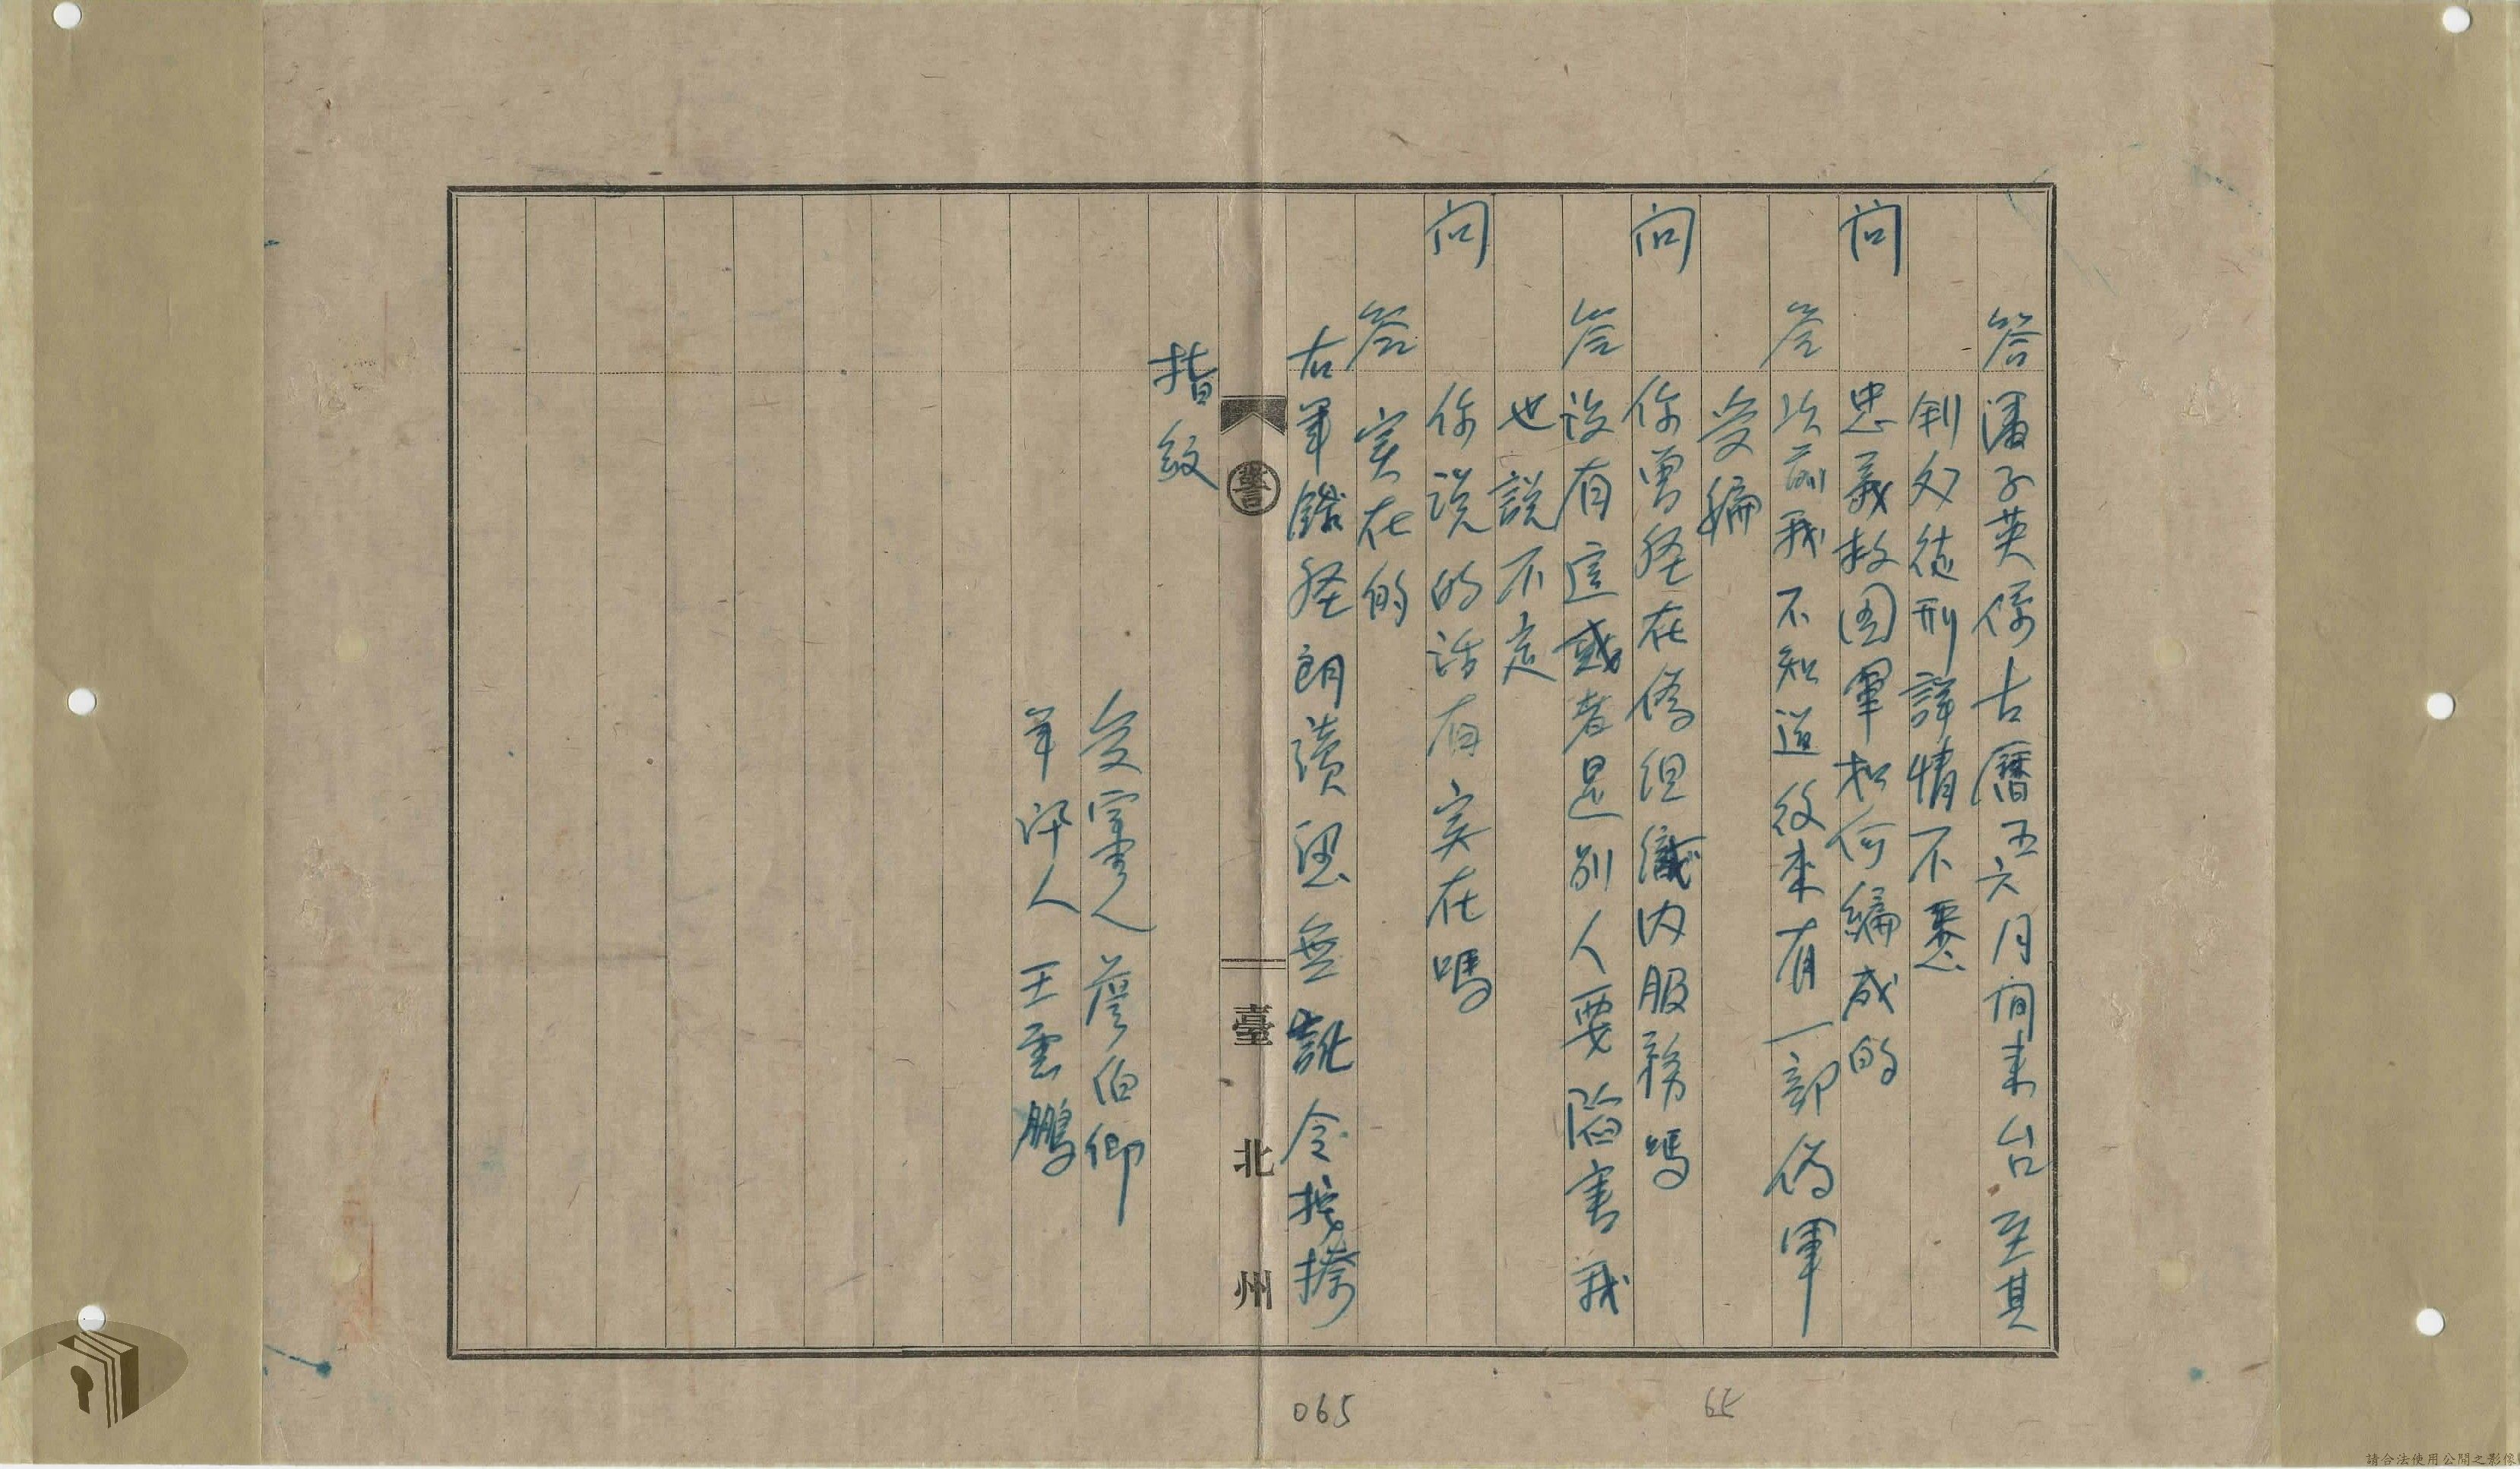 答 潘子英係古曆五六月間来台至其
判処徒刑詳情不悉
问 忠義救国軍如何編成的
答 以前我不知道後来有一部偽軍
受編
问 你曾経在偽组織内服務嗎
答 没有這或者是别人要陷害我
也說不定
问 你説的話有実在嗎
答 実在的
右筆錄経朗讀認無訛令按捺
指紋
受審人 詹伯卿
筆訊人 王雲鵬
警 臺北州
065
65
請合法使用公開之影像